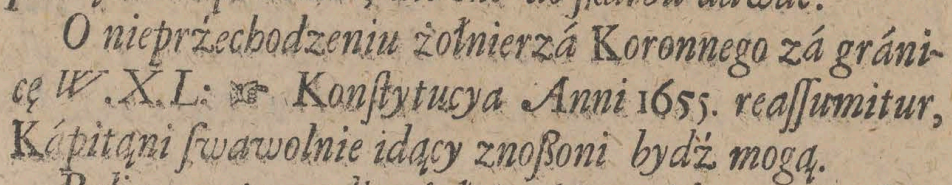 O nieprźechodzeniu żołnierzá Koronnego zá gráni-
cę W.X.L: ☞ Konſtytucya Anni 1655. reaſſumitur,
Kápitąni ſwawolnie idący znoßoni bydź mogą.